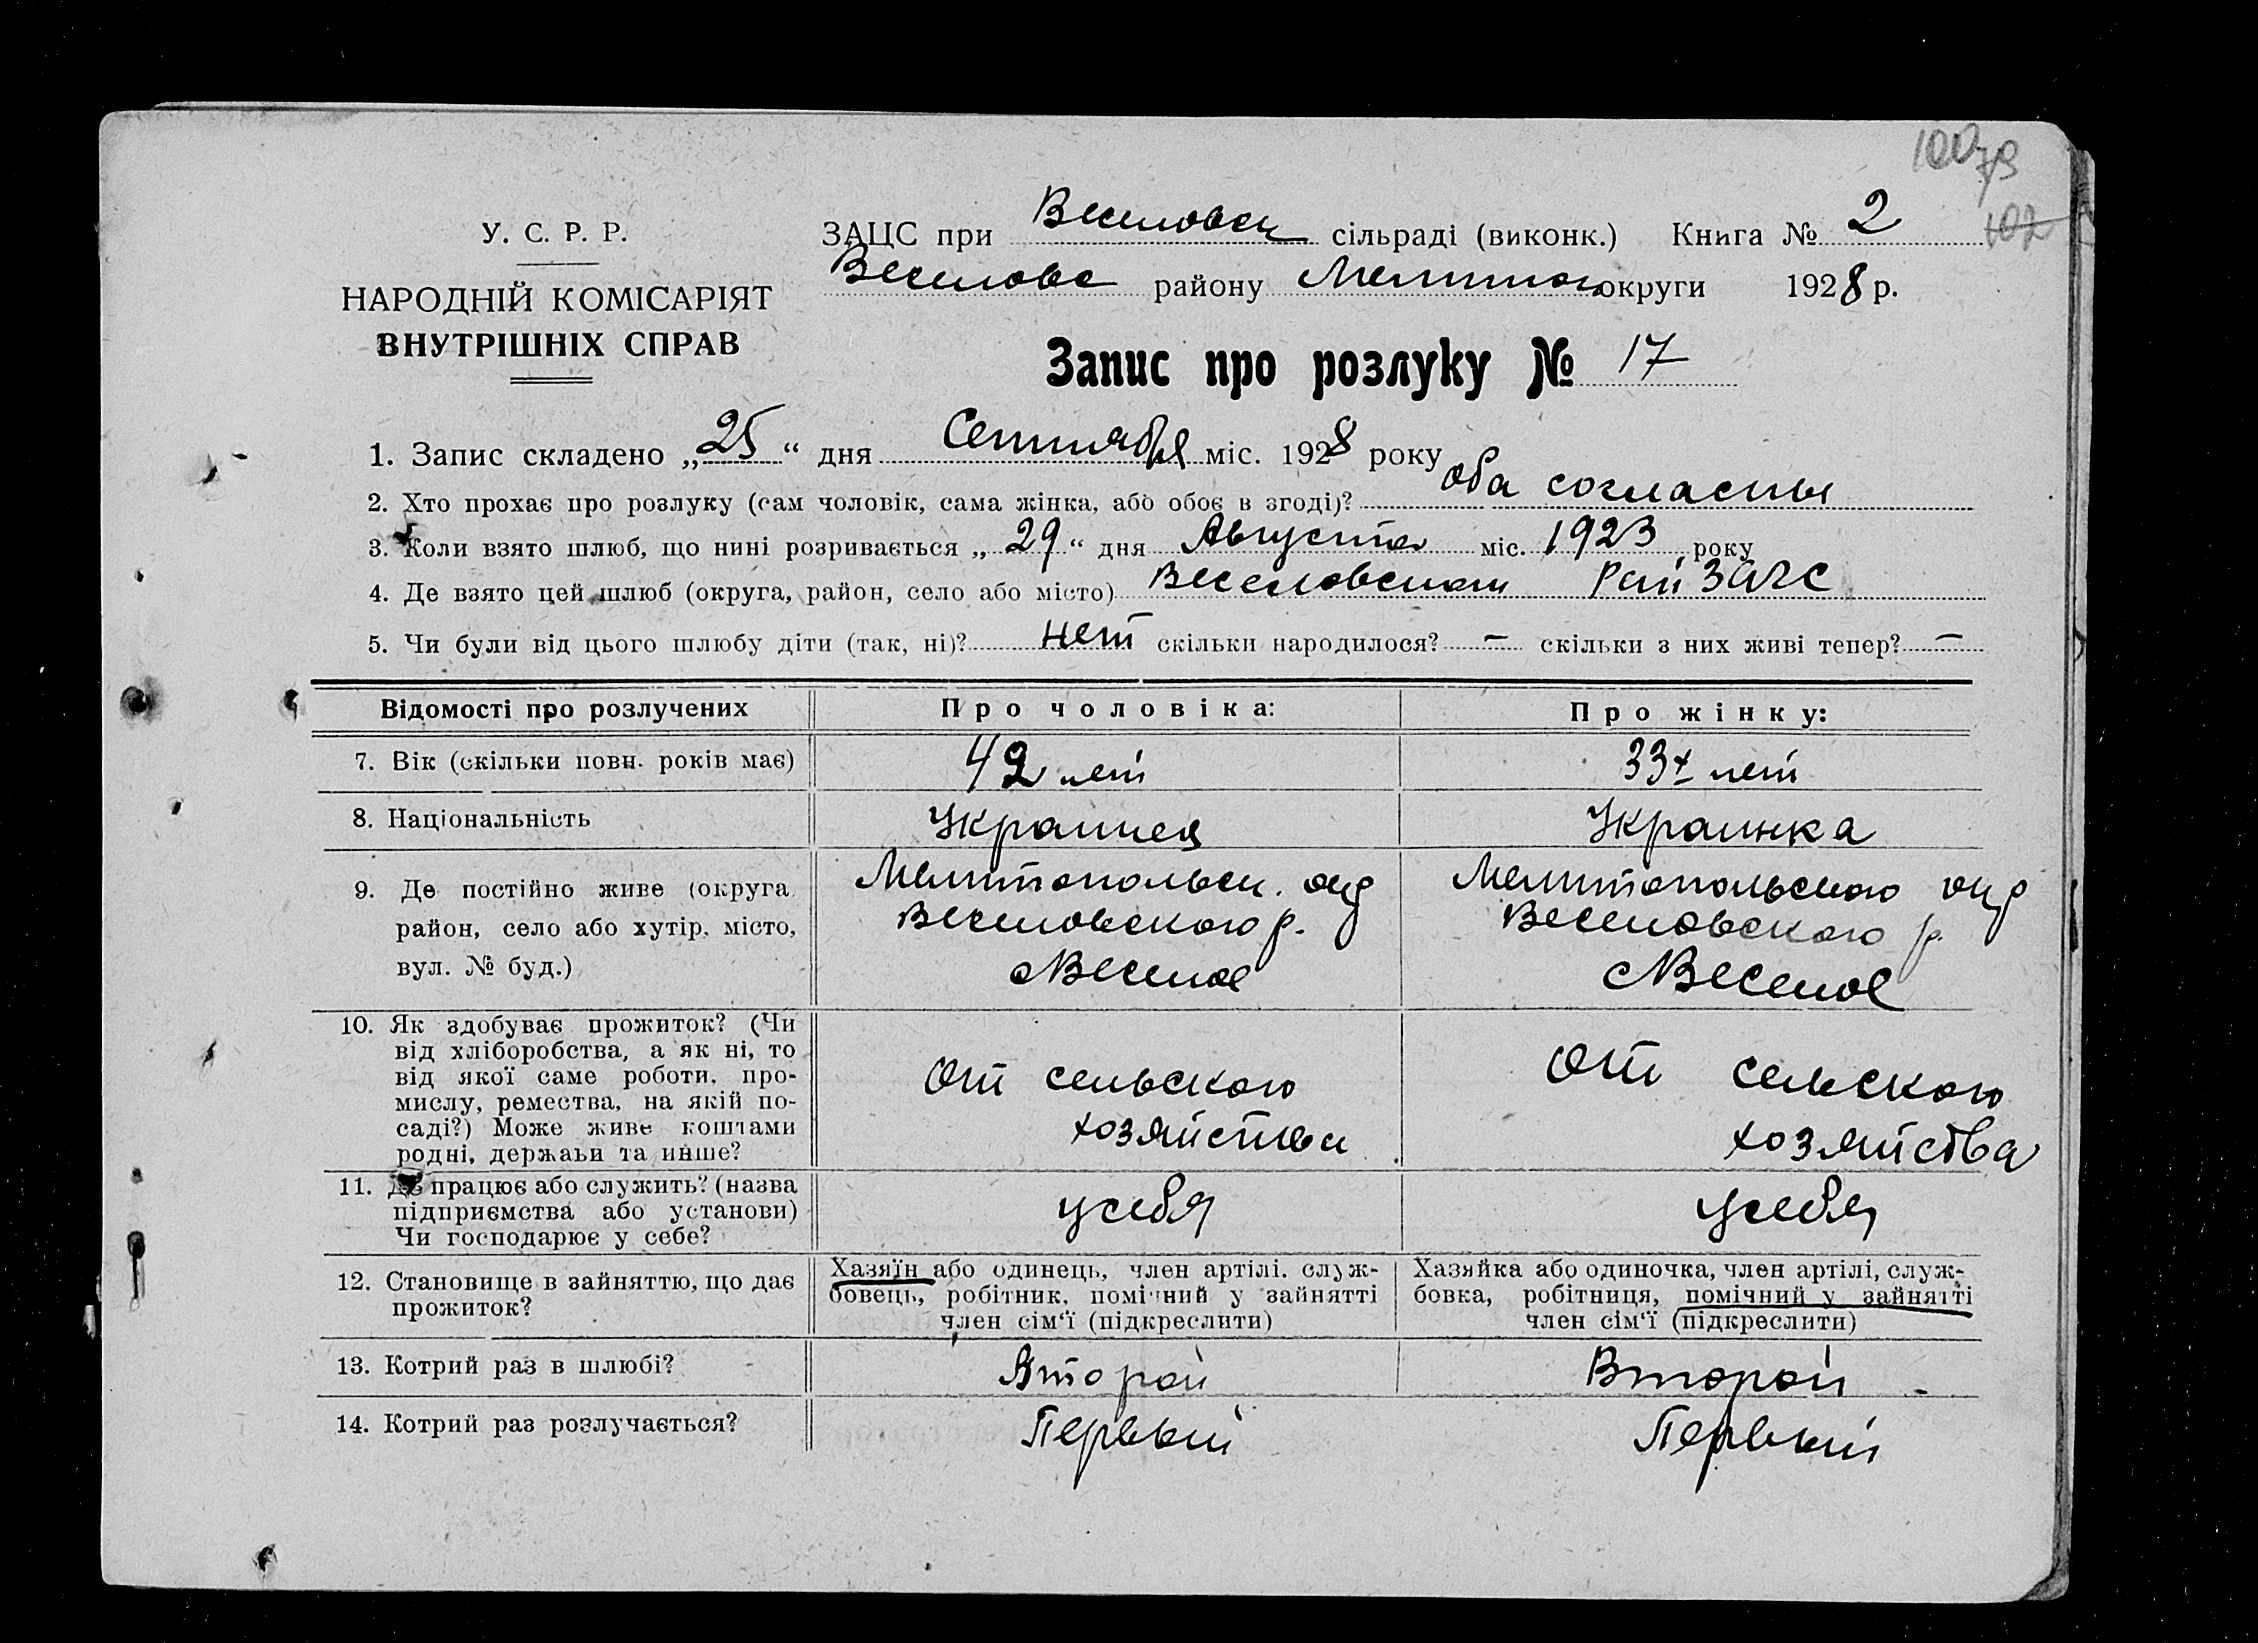 100 79
102
У. С. Р. Р.
НАРОДНІЙ КОМІСАРІЯТ
ВНУТРІШНІХ СПРАВ
ЗАЦС при Веселовск сільраді (виконк.) Книга № 2
Веселовс района Мелитоп округи 1928 р.
Запис про розлуку № 17
1. Запис складено „25“ дня Сентября міс. 1928 року
2. Хто прохає про розлуку (сам чоловік, сама жінка, або обоє в згоді)? оба согласны
3. Коли взято шлюб, що нині розривається „29“ дня Августа міс. 1923 року
4. Де взято цей шлюб (округа, район, село або місто) Веселовском Рай ЗАГС
5. Чи були від цього шлюбу діти (так, ні)? нет скільки народилося? – скільки з них живі тепер? –
Відомості про розлучених Про чоловіка: Про жінку:
7. Вік (скільки повн. років має) 42 лет 33х лет
8. Національність Украинец Украинка
9. Де постійно живе (округа, район, село або хутір, місто, вул. № буд.)
Мелитопольск. окр
Веселовского р.
с Веселое
Мелитопольского окр
Веселовского р.
с Веселое
10. Як здобуває прожиток? (Чи
від хліборобства, а як ні, то
від якої саме роботи, про-
мислу, ремества, на якій по-
саді?) Може живе коштами
родні, держави та инше?
От сельского
хозяйства
От сельского
хозяйства
11. Де працює або служить? (назва
підприємства або установи)
Чи господарює у себе?
у себя
у себя
12. Становище в зайняттю, що дає
прожиток?
Хазяїн або одинець, член артілі, служ-
бовець, робітник, помічний у зайнятті
член сім'ї (підкреслити)
Хазяйка або одиночка, член артілі, служ-
бовка, робітниця, помічний у зайнятті
член сім'ї (підкреслити)
13. Котрий раз в шлюбі? Второй Второй
14. Котрий раз розлучається? Первый Первый